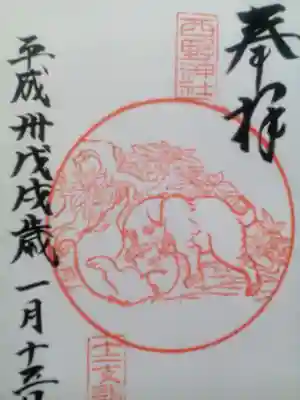 奉拝
西野神社
十二支詣
平成卅戊戌歳一月十三日